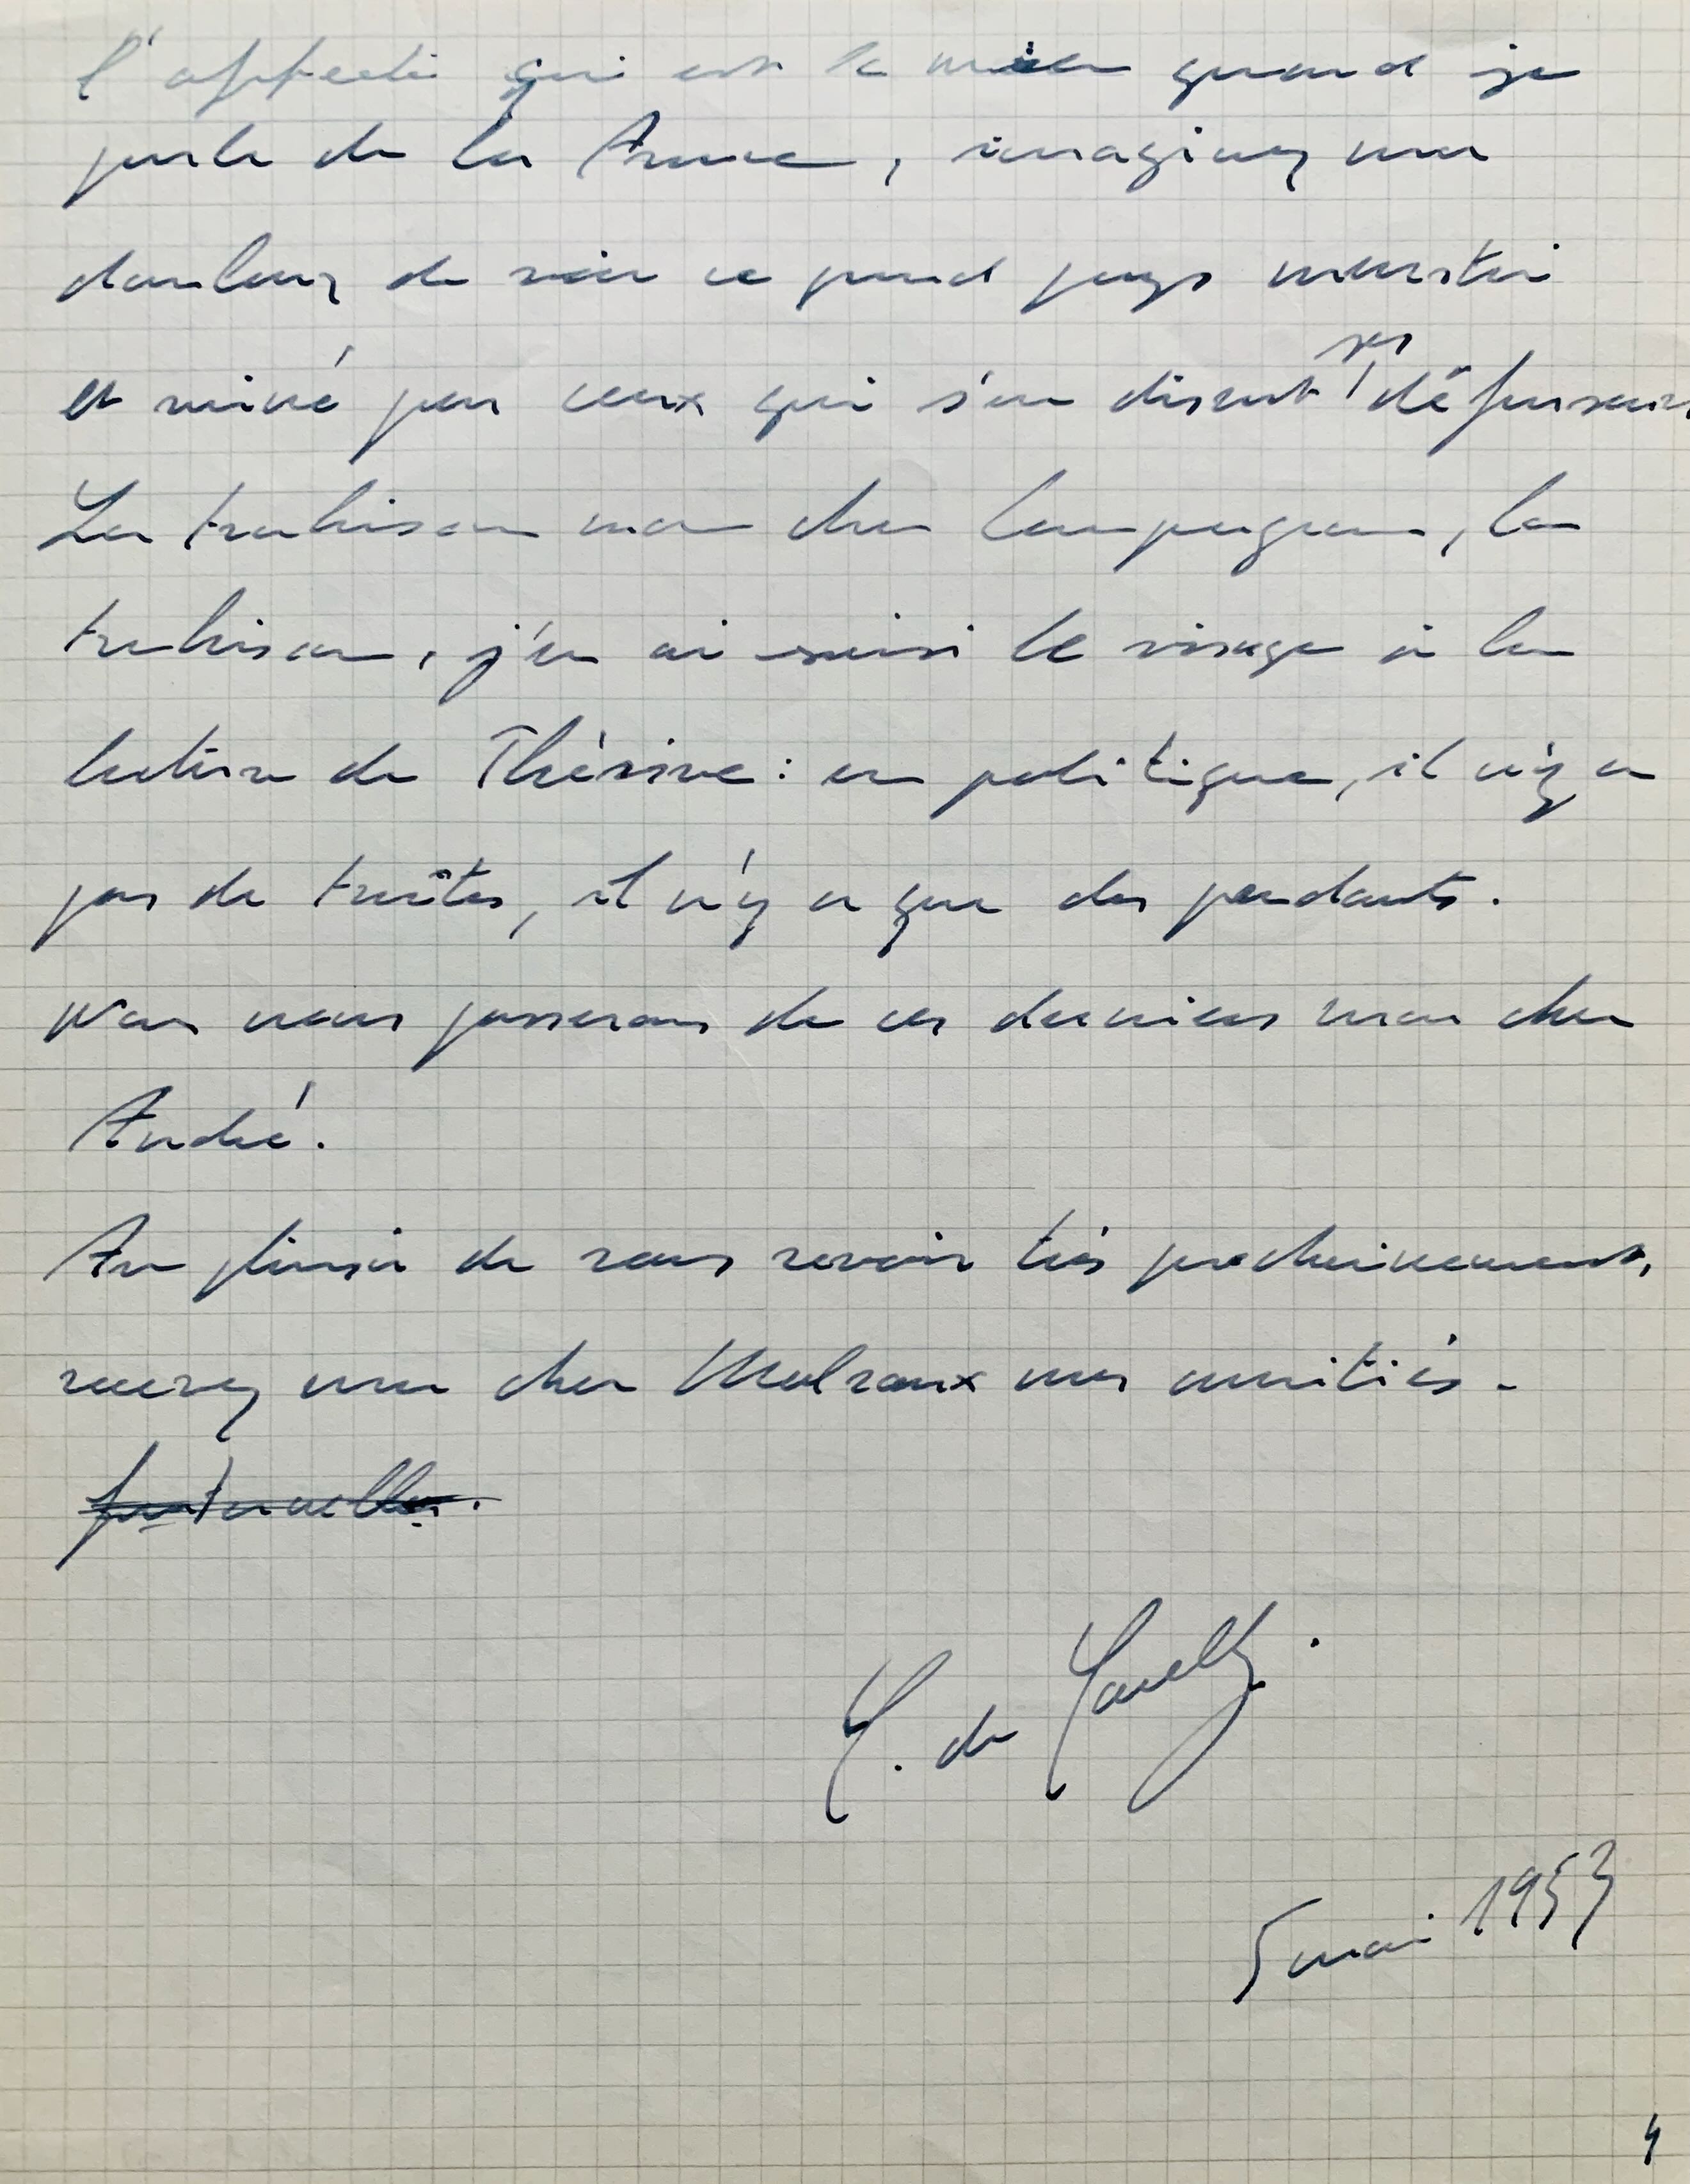 l'appétit qui est le mien quand je
parle de la France, imaginez ma
douleur de voir ce grand pays meurtri
et miné par ceux qui s'en disent ses défenseurs
La trahison mon cher compagnon, la
trahison, j'en ai saisi le visage à la
lecture de Thérive : en politique, il n'y a
pas de traîtres, il n'y a que des perdants.
Nous nous passerons de ces derniers mon cher
André.
Au plaisir de vous revoir très prochainement,
recevez mon cher Malraux mes amitiés.
fraternelles.
C. de Gaulle.
5 mai 1953
4